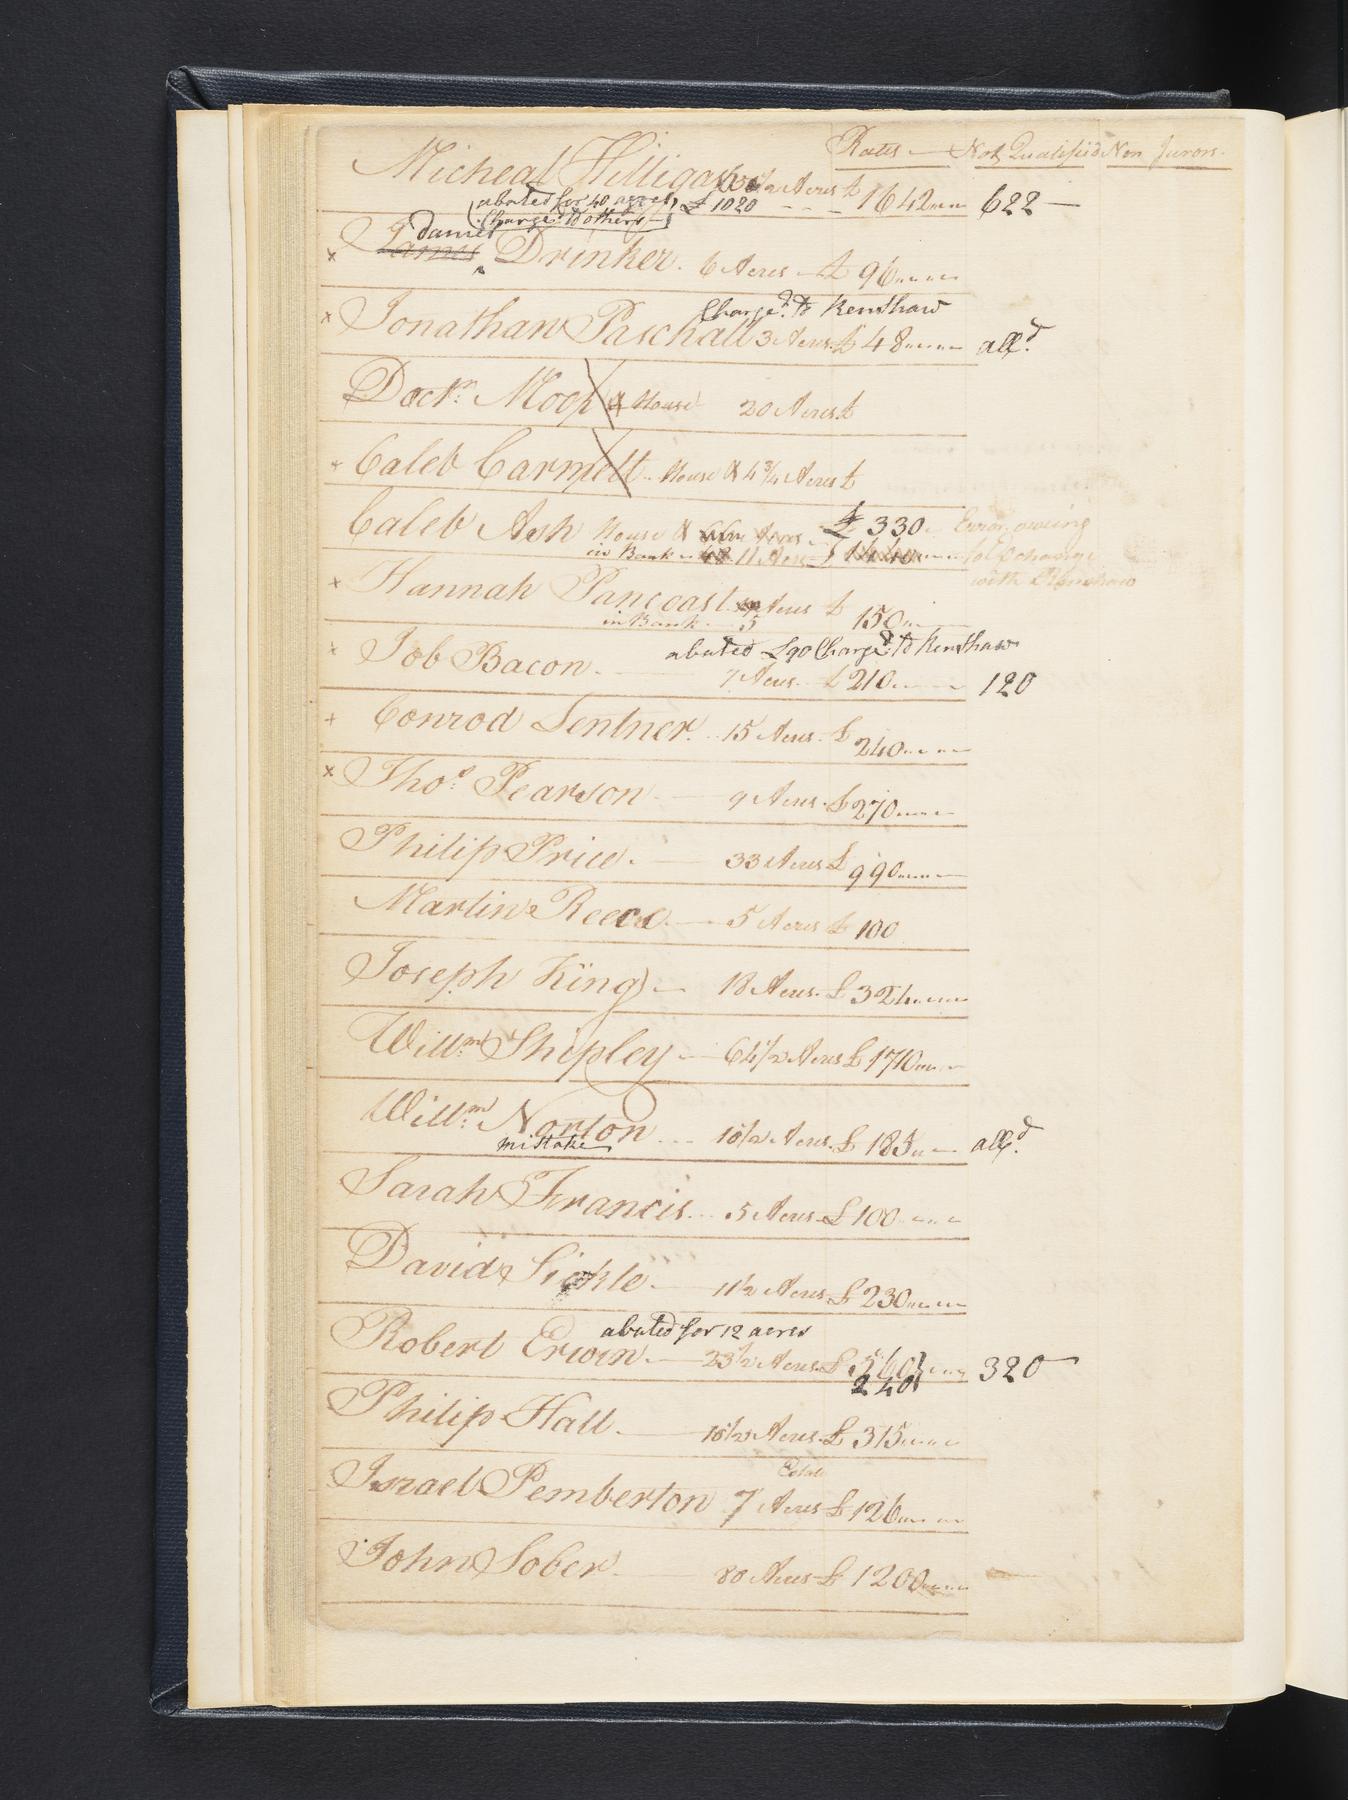 Rates — Not Qualifiid Non Jurors.
Micheal Hilligas 1/2 Acres £ 1642 622 —
(abated for 40 acres) £ 1020
Charged to others
Daniel
x James Drinker. 6 Acres £ 96
Charge.d to Kenthaw
x Jonathan Paschall 3 Acres £ 48 all.d
Doct.r Moor & House 20 Acres £
x Caleb Carmelt House & 4 3/4 Acres £
Caleb Ash House & £ 330 Error owing
in Bank 11 Acres 1440 to Exchange
with
x Hannah Pancoast Acres £ 150
in Bank 5
abated £90 Charge.d to Kenthaw
x Job Bacon. 7 Acres £ 210 120
x Conrod Lentner. 15 Acres £ 240
x Tho.s Pearson 9 Acres £ 270
Philip Price. 33 Acres £ 990
Martin Reece 5 Acres £ 100
Joseph King 18 Acres £ 324
Will.m Shipley 64 1/2 Acres £ 1710
Will.m Norton 10 1/2 Acres £ 183 all.d
mistake
Sarah Francis 5 Acres £ 100
David Sickle 11 1/2 Acres £ 230
abated for 12 acres
Robert Erwin 23 1/2 Acres £ 560 320
240
Philip Hall 10 1/2 Acres £ 315
Estate
Israel Pemberton 7 Acres £ 126
John Sober 80 Acres £ 1200